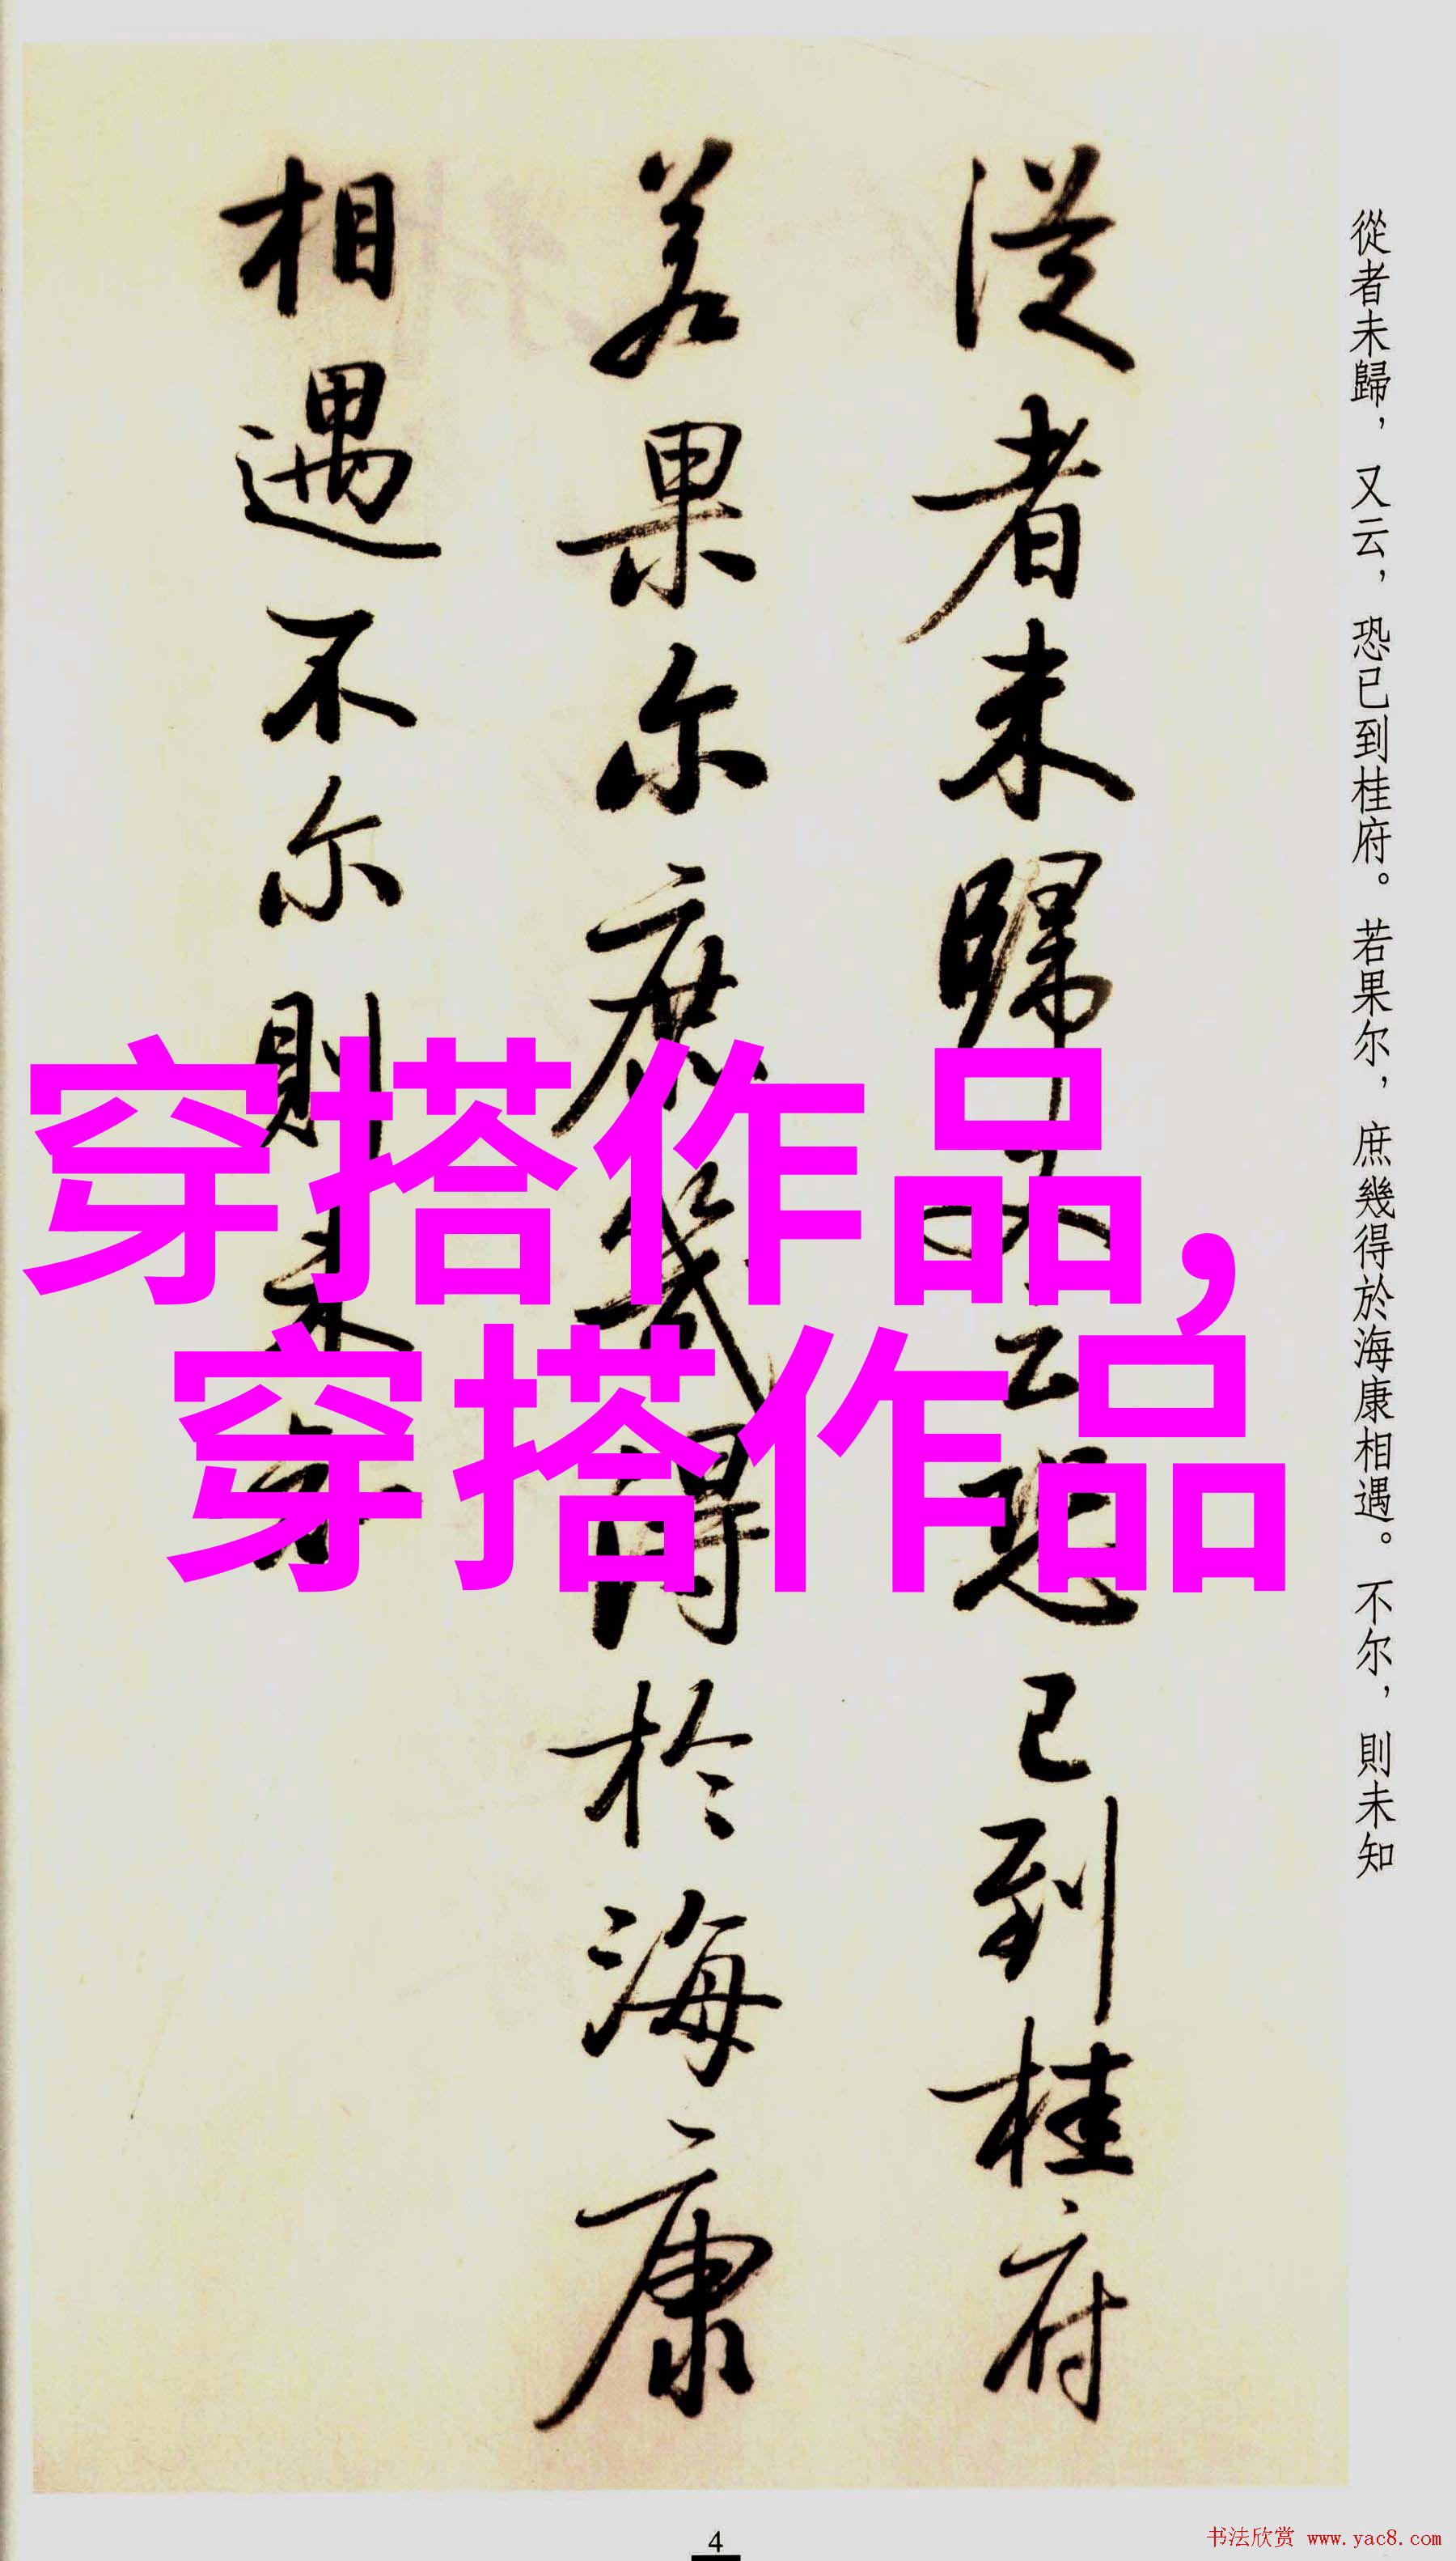 從者未歸，又云，恐已到桂府。若果尔，庶幾得於海康相遇。不尔，則未知
從者未歸又云恐已到桂府
若果尔庶幾得於海康
相遇不尔則未
穿搭作品,
穿搭作品
4
书法欣赏 www.yac8.com